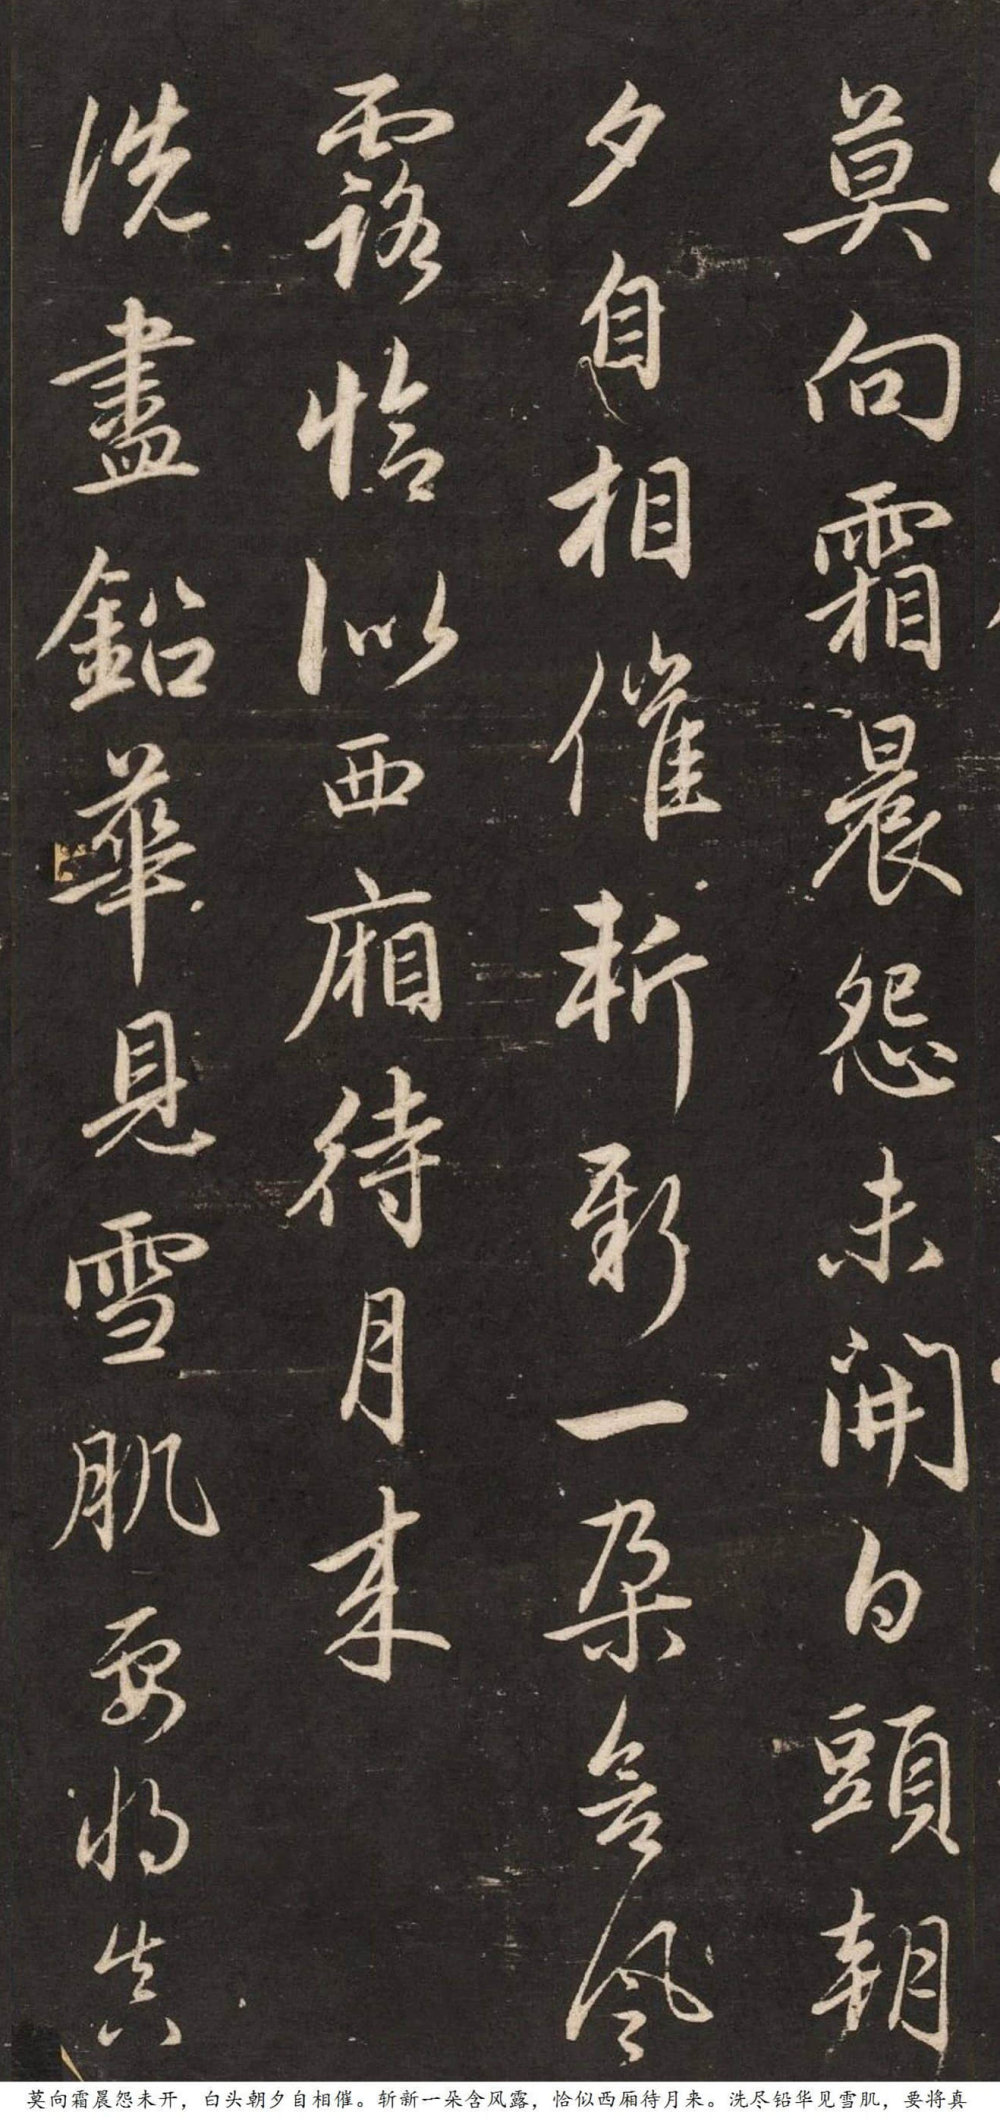 莫向霜晨怨未開白頭朝
夕自相催斬新一朵含風
露恰似西廂待月来
洗盡鉛華見雪肌要将真
莫向霜晨怨未开，白头朝夕自相催。斩新一朵含风露，恰似西厢待月来。洗尽铅华见雪肌，要将真